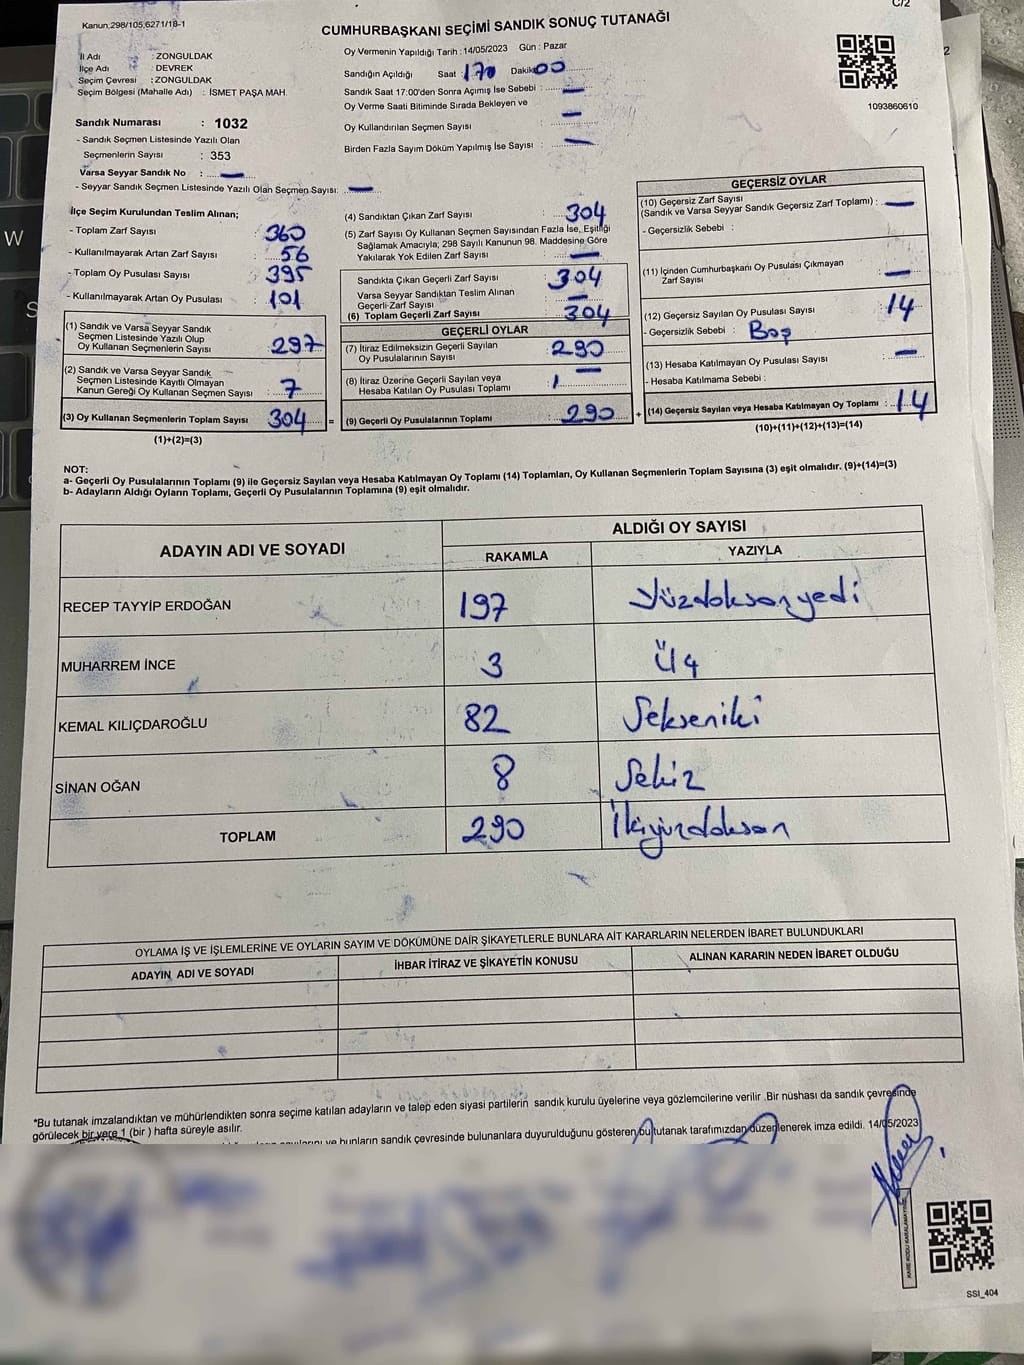 Kanun.298/105,6271/18-1
C/2
CUMHURBAŞKANI SEÇİMİ SANDIK SONUÇ TUTANAĞI
İl Adı : ZONGULDAK
İlçe Adı : DEVREK
Seçim Çevresi : ZONGULDAK
Seçim Bölgesi (Mahalle Adı) : İSMET PAŞA MAH.
Sandık Numarası : 1032
- Sandık Seçmen Listesinde Yazılı Olan
Seçmenlerin Sayısı : 353
Varsa Seyyar Sandık No : —
- Seyyar Sandık Seçmen Listesinde Yazılı Olan Seçmen Sayısı: —
Oy Vermenin Yapıldığı Tarih : 14/05/2023 Gün : Pazar
Sandığın Açıldığı Saat : 170 Dakika 00
Sandık Saat 17:00'den Sonra Açımış İse Sebebi : —
Oy Verme Saati Bitiminde Sırada Bekleyen ve
Oy Kullandırılan Seçmen Sayısı : —
Birden Fazla Sayım Döküm Yapılmış İse Sayısı : —
2
1093860610
İlçe Seçim Kurulundan Teslim Alınan;
- Toplam Zarf Sayısı : 360
- Kullanılmayarak Artan Zarf Sayısı : 56
- Toplam Oy Pusulası Sayısı : 395
- Kullanılmayarak Artan Oy Pusulası : 101
(1) Sandık ve Varsa Seyyar Sandık
Seçmen Listesinde Yazılı Olup
Oy Kullanan Seçmenlerin Sayısı : 297
(2) Sandık ve Varsa Seyyar Sandık
Seçmen Listesinde Kayıtlı Olmayan
Kanun Gereği Oy Kullanan Seçmen Sayısı : 7
(3) Oy Kullanan Seçmenlerin Toplam Sayısı : 304
(1)+(2)=(3)
(4) Sandıktan Çıkan Zarf Sayısı : 304
(5) Zarf Sayısı Oy Kullanan Seçmen Sayısından Fazla İse, Eşitliği
Sağlamak Amacıyla; 298 Sayılı Kanunun 98. Maddesine Göre
Yakılarak Yok Edilen Zarf Sayısı : —
Sandıkta Çıkan Geçerli Zarf Sayısı : 304
Varsa Seyyar Sandıktan Teslim Alınan
Geçerli Zarf Sayısı : —
(6) Toplam Geçerli Zarf Sayısı : 304
GEÇERLİ OYLAR
(7) İtiraz Edilmeksizin Geçerli Sayılan
Oy Pusulalarının Sayısı : 290
(8) İtiraz Üzerine Geçerli Sayılan veya
Hesaba Katılan Oy Pusulası Toplamı : —
= (9) Geçerli Oy Pusulalarının Toplamı : 290 +
GEÇERSİZ OYLAR
(10) Geçersiz Zarf Sayısı
(Sandık ve Varsa Seyyar Sandık Geçersiz Zarf Toplamı) : —
- Geçersizlik Sebebi :
(11) İçinden Cumhurbaşkanı Oy Pusulası Çıkmayan
Zarf Sayısı : —
(12) Geçersiz Sayılan Oy Pusulası Sayısı : 14
- Geçersizlik Sebebi : Boş
(13) Hesaba Katılmayan Oy Pusulası Sayısı : —
- Hesaba Katılmama Sebebi :
(14) Geçersiz Sayılan veya Hesaba Katılmayan Oy Toplamı : 14
(10)+(11)+(12)+(13)=(14)
NOT:
a- Geçerli Oy Pusulalarının Toplamı (9) ile Geçersiz Sayılan veya Hesaba Katılmayan Oy Toplamı (14) Toplamları, Oy Kullanan Seçmenlerin Toplam Sayısına (3) eşit olmalıdır. (9)+(14)=(3)
b- Adayların Aldığı Oyların Toplamı, Geçerli Oy Pusulalarının Toplamına (9) eşit olmalıdır.
ADAYIN ADI VE SOYADI ALDIĞI OY SAYISI
RAKAMLA YAZIYLA
RECEP TAYYİP ERDOĞAN 197 Yüzdoksanyedi
MUHARREM İNCE 3 Üç
KEMAL KILIÇDAROĞLU 82 Sekseniki
SİNAN OĞAN 8 Sekiz
TOPLAM 290 İkiyüzdoksan
OYLAMA İŞ VE İŞLEMLERİNE VE OYLARIN SAYIM VE DÖKÜMÜNE DAİR ŞİKAYETLERLE BUNLARA AİT KARARLARIN NELERDEN İBARET BULUNDUKLARI
ADAYIN ADI VE SOYADI İHBAR İTİRAZ VE ŞİKAYETİN KONUSU ALINAN KARARIN NEDEN İBARET OLDUĞU
*Bu tutanak imzalandıktan ve mühürlendikten sonra seçime katılan adayların ve talep eden siyasi partilerin sandık kurulu üyelerine veya gözlemcilerine verilir .Bir nüshası da sandık çevresinde
görülecek bir yere 1 (bir ) hafta süreyle asılır.
ve bunların sandık çevresinde bulunanlara duyurulduğunu gösteren bu tutanak tarafımızdan düzenlenerek imza edildi. 14/05/2023
KARE KODU KARALAMAYINIZ
SSI_404
W
S